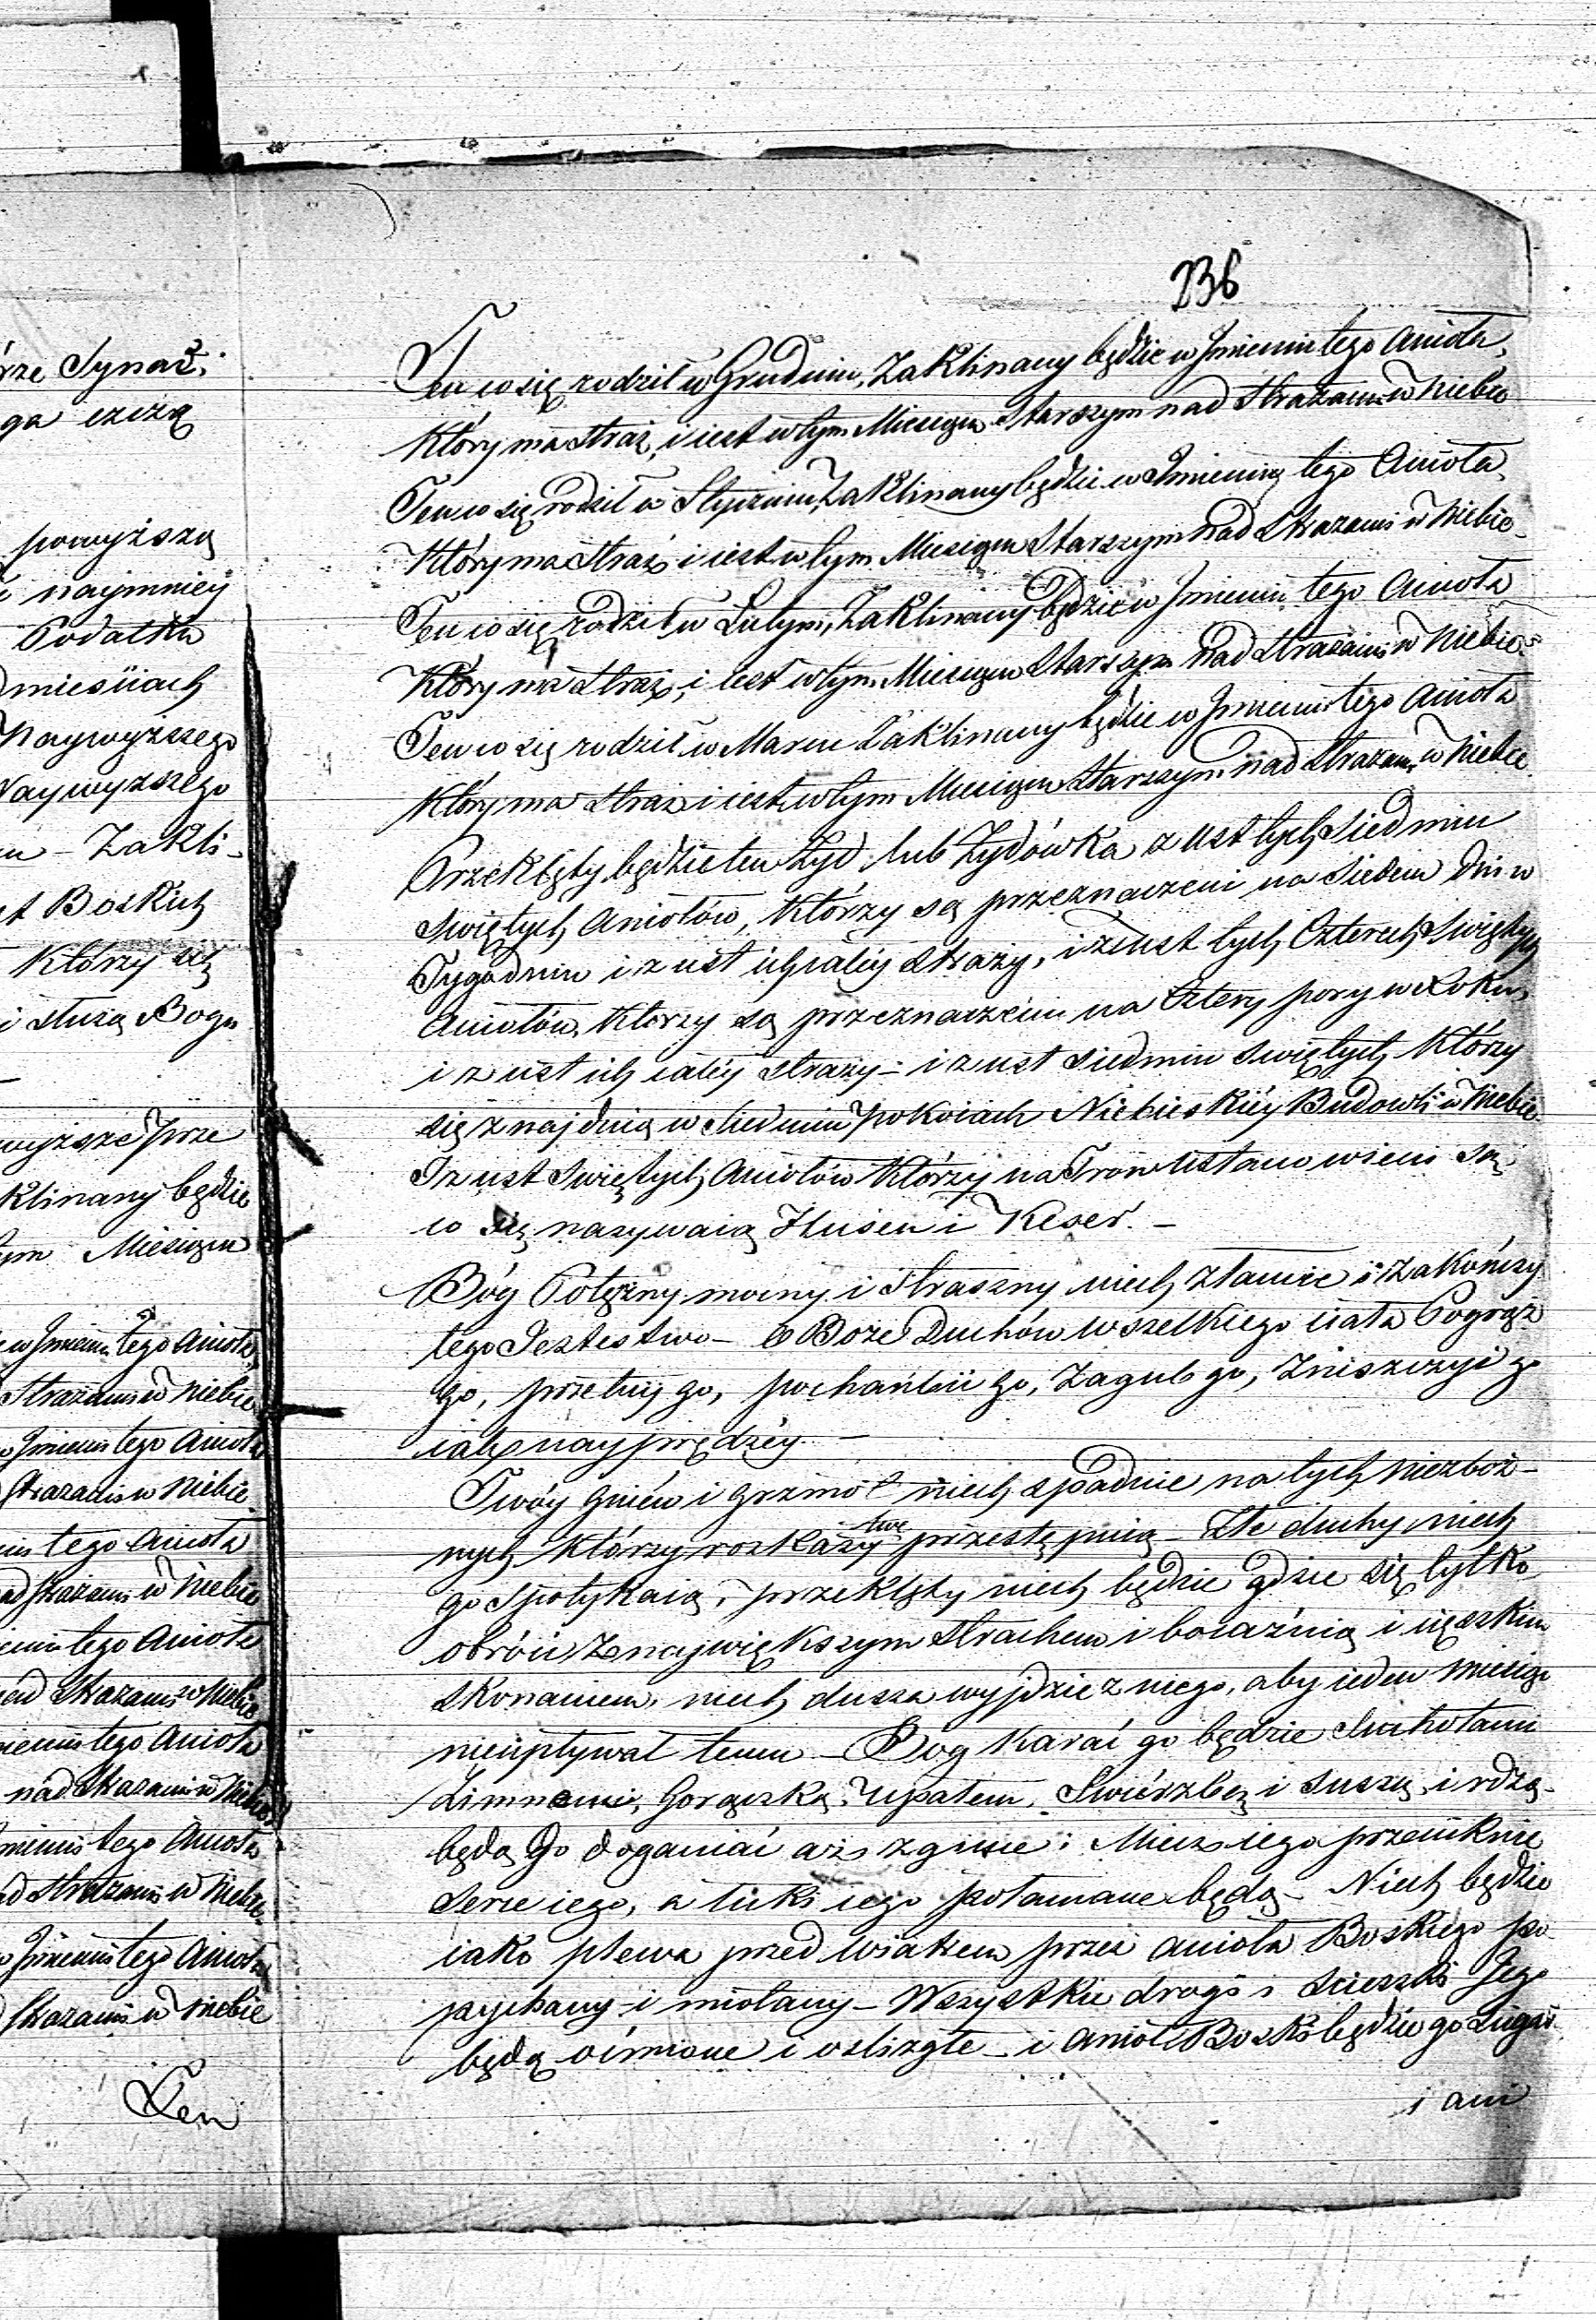 236
Ten co się rodził w Grudniu, Zaklinany będzie w Jmieniu tego Anioła,
Który ma straż, i iest w tym Miesiącu Starszym nad Strażami w Niebie
Ten co się rodził w Styczniu, Zaklinany będzie w Jmieniu tego Anioła,
Który ma Straż i iest w tym Miesiącu Starszym nad Strażami w Niebie.
Ten co się rodził w Lutym, Zaklinany będzie w Jmieniu tego Anioła
Który ma Straż, i iest w tym Miesiącu Starszym nad Strażami w Niebie
Ten co się rodził w Marcu Zaklinany będzie w Jmieniu tego Anioła
Który ma Straż i iest w tym Miesiącu Starszym nad Strażami w Niebie
Przeklęty będzie ten Żyd, lub Żydówka z ust tych Siedmiu
Swiętych Aniołów, Którzy są przeznaczeni na Siedem Dni w
Tygodniu i z ust ich całéy Straży, i z ust tych Czterech Swiętych
Aniołów, Którzy są przeznaczeni na Cztery pory w Roku,
i z ust ich całéy straży – i z ust Siedmiu Swiętych Którzy
się znajduią w Siedmiu Pokoiach Niebieskiéy Budowli w Niebie.
I z ust Swiętych Aniołów Którzy na Tron Ustanowieni są,
co się nazywaią Husen i Keser. –
Bóg Potężny mocny i Straszny niech złamie i zakończy
tego Jestestwo – O Boże Duchów wszelkiego ciała Pogrąż
go, przetnij go, pochańbii go, Zagub go, Zniszczyć go
całe nayprędzéy –
Twóy gniéw i grzmot niech spadnie na tych niezboż-
nych Którzy rozkazy twe przestępuią – Złe duchy niech
go Spotykaią, przeklęty niech będzie gdzie się tylko
obróci Z największym Strachem i boiaźnią i cięzkim
Skonaniem, niech dusza wyjdzie z niego, aby ieden miesiąc
nieupływał temu – Bog Karać go będzie Suchotami
Zimnem, Gorączką, Upałem, Swiérzbą i Suszą, i rdzą –
będą Go doganiać aż zginie: Miecz iego przeniknie
Serce iego, a łuki iego połamane będą – Niech będzie
iako plewa przed Wiatrem przez Anioła Boskiego po-
pychany i miotany – Wszystkie drogi i Scieszki Jego
będą cimione i oslizgłe – i Anioł Boski będzie go Scigał
i ani
rze Synai.
ga czczą
powyższą
naymniéy
Podatku
Naywyższego
Naywyższego
Zakli-
Boskich
Którzy są
i służą Bogu
klinany będzie
tym Miesiącu
w Jmieniu tego Anioła,
Strażami w Niebie
Jmieniu tego Anioła
Strażami w Niebie.
tego Anioła
Strażami w Niebie
tego Anioła
nad Strażami w Niebie
tego Anioła
nad Strażami w Niebie
tego Anioła
nad Strażami w Niebie.
Jmieniu tego Anioła
Strażami w Niebie
Ten